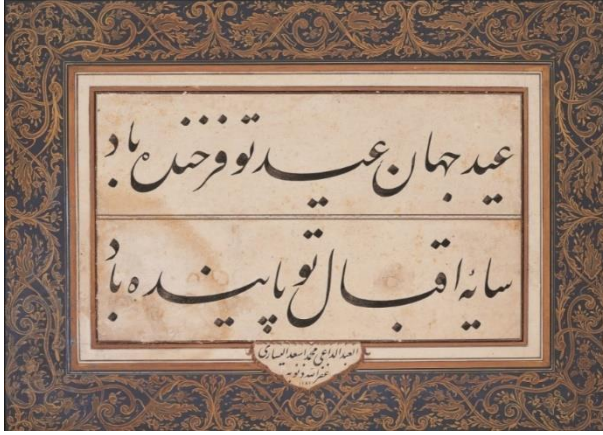 عيد جهان عيد تو فرخنده باد
سايۀ اقبال تو پاينده باد
العبد الداعی محمد اسعد اليساری
غفر الله ذنوبه